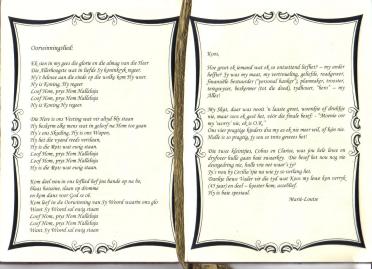 Oorwinningslied!
Ek sien in my gees die gloria en almag van die Heer
Die Allerhoogste wat in liefde Sy koninkryk regeer.
Hy's bekwaam aan die einde op die wolke kom Hy weer.
Hy is Koning, Hy regeer.
Loof Hom, prys Hom Halleluja
Loof Hom, prys Hom Halleluja
Loof Hom, prys Hom Halleluja
Hy is Koning Hy regeer
Die Here is ons Vesting wat vir altyd bly staan
Hy beskerm elke mens wat in geloof na Hom toe gaan
Hy's ons Skuiling, Hy is ons Wapen,
Hy het die vyand reeds verslaan,
Hy is die Rots wat ewig staan.
Loof Hom, prys Hom Halleluja
Loof Hom, prys Hom Halleluja
Loof Hom, prys Hom Halleluja
Hy is die Rots wat ewig staan.
Kom deel nou in ons loflied hef jou hande op na bo,
blaas basuine, slaan op dromme
en kom dans voor God se
Kom leef in die Oorwinning van Sy Woord waarin ons glo
Want Sy Woord sal ewig staan
Loof Hom, prys Hom Halleluja
Loof Hom, prys Hom Halleluja
Loof Hom, prys Hom Halleluja
Want Sy Woord sal ewig staan
Kons,
Hoe groet ek iemand wat ek so ontsettend liefhet? – my eerder
helfte? Sy was my maat, my vertroueling, geliefde, raadgewer,
finansiële bestuurder ("personal banker"), planmaker, trooster,
"hero" – my
Alles!
My Skat, daar was nooit 'n laaste groet, woordjie of drukkie
nie, maar toe ek gou het, vóór die finale "Moenie oor
my 'worry' nie, ek is O.K."
Ons vier pragtige kinders dra my as ek nie meer wil, of kan nie.
Hulle is so pragtig, jy sou so trots gewees het!
Die twee kleintjies, Cobus en Clarisa, was jou hele lewe en
Die besef het nou nog nie
deurgedring nie, hulle vra net waar's jy?
Sy's nou by Cecilia
Dankie liewe Vader vir die tyd wat Kons my lewe kon verryk
(13 jaar) en deel – kosbare hom, asseblief.
Hy is baie spesiaal.
Marié-Louise